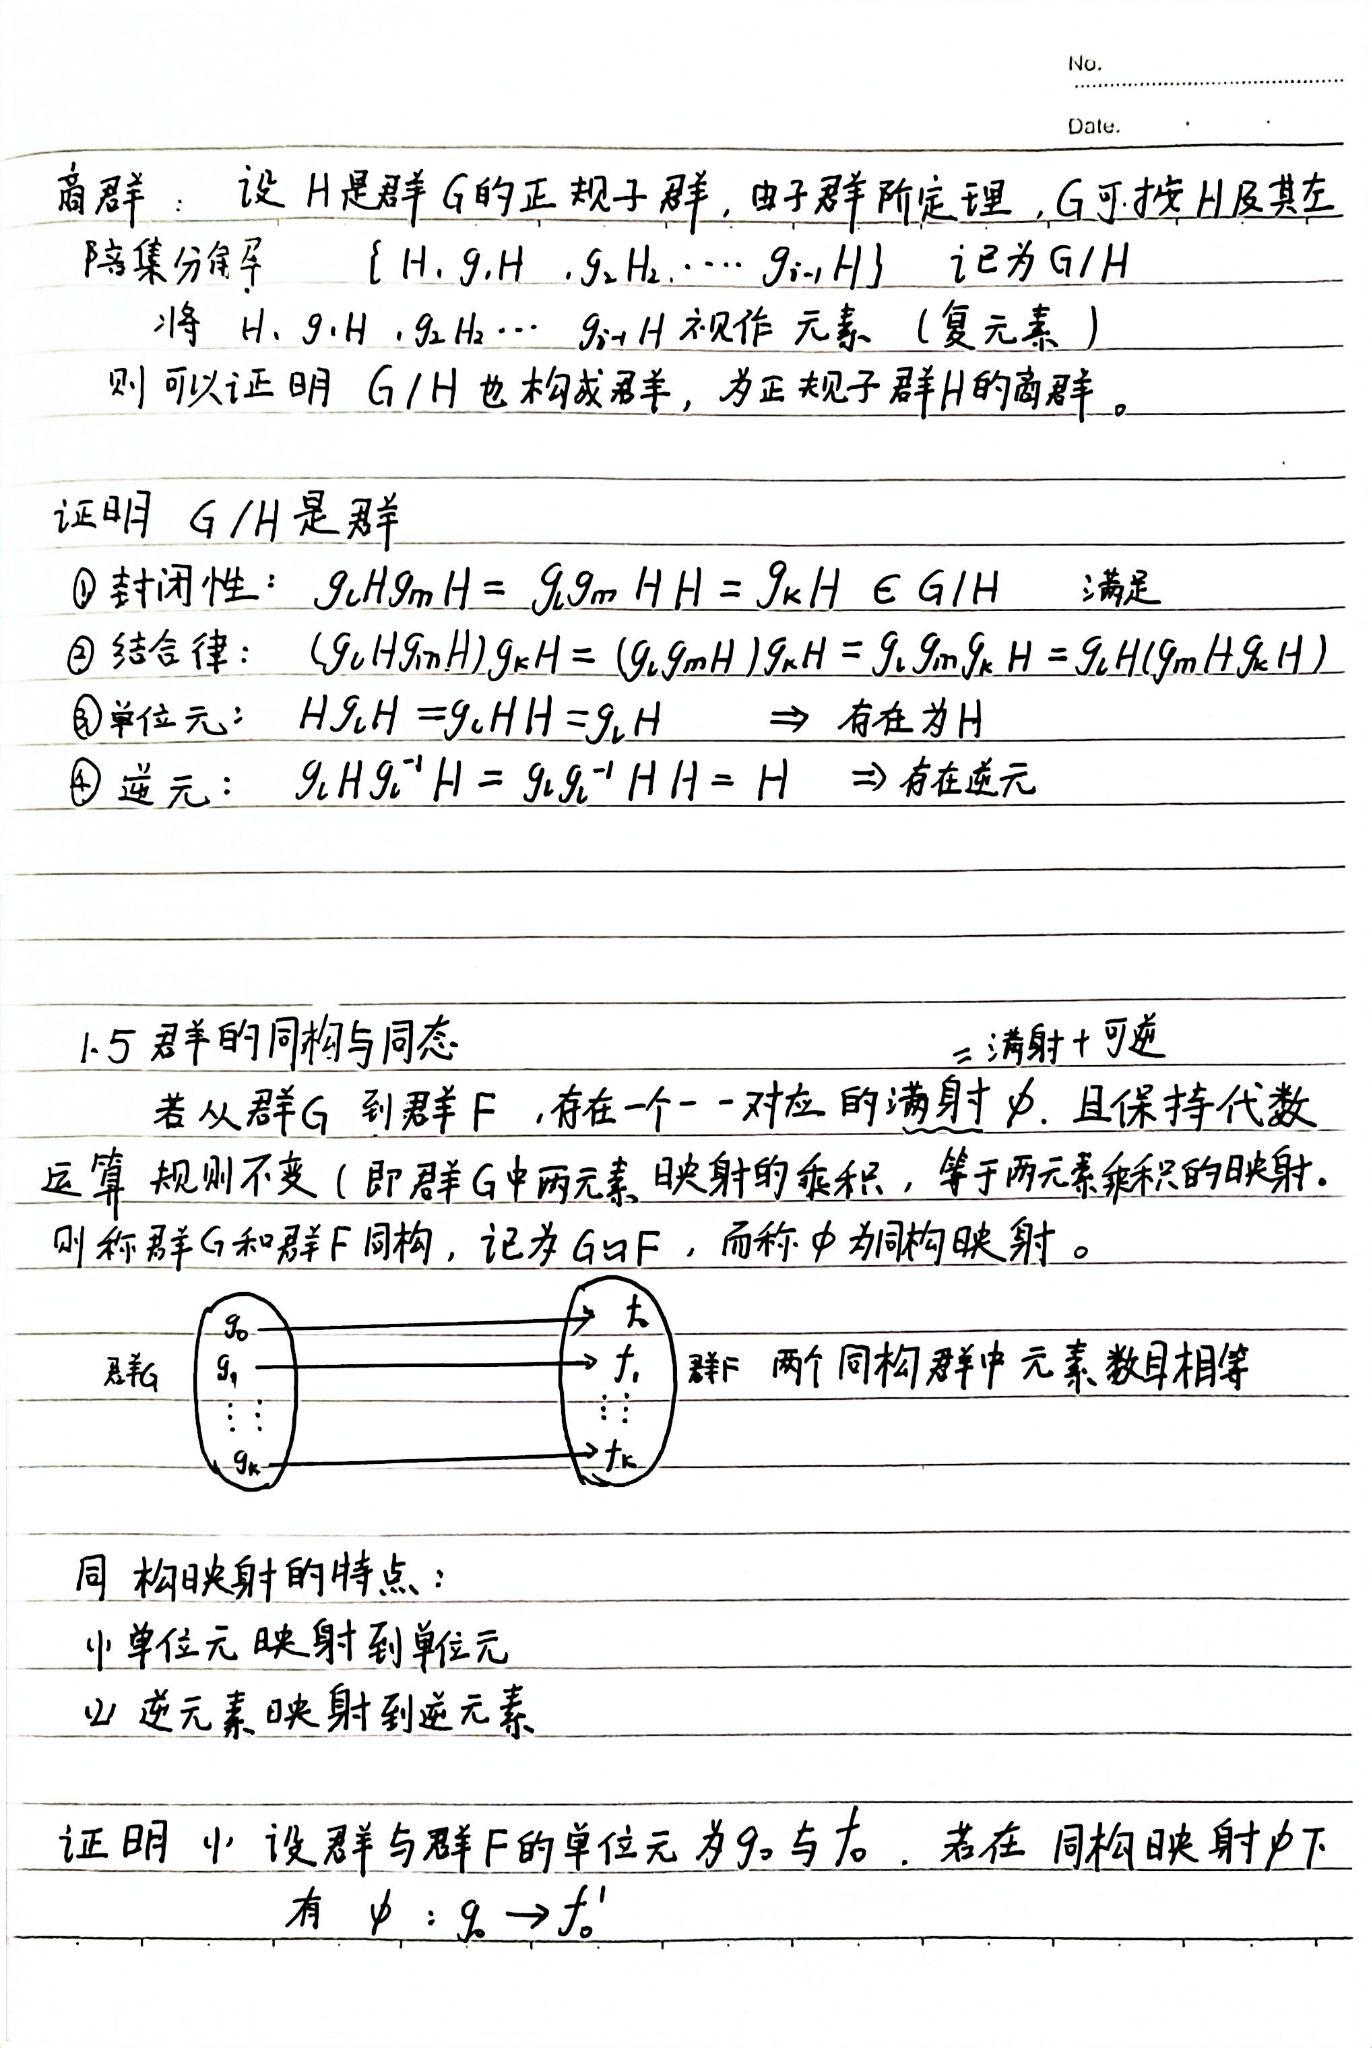 No.
Date.
商群： 设 H是群G的正规子群，由子群阶定理，G可按H及其左
陪集分解 { H, g₁H , g₂H₂, ···· gᵢ₋₁H } 记为G/H
将 H, g₁H , g₂H₂ ··· gᵢ₋₁H 视作 元素 (复元素)
则可以证明 G/H 也构成群，为正规子群H的商群。
证明 G/H是群
① 封闭性： gₗHgₘH = gₗgₘ HH = gₖH ∈ G/H 满足
② 结合律： (gₗHgₘH)gₖH = (gₗgₘH)gₖH = gₗgₘgₖH = gₗH(gₘHgₖH)
③ 单位元： HgₗH = gₗHH = gₗH ⇒ 存在为H
④ 逆元： gₗHgₗ⁻¹H = gₗgₗ⁻¹HH = H ⇒ 存在逆元
1.5 群的同构与同态
= 满射+可逆
若从群G 到群F ,存在一个一一对应的满射φ. 且保持代数
运算规则不变(即群G中两元素映射的乘积，等于两元素乘积的映射.
则称群G和群F同构，记为G≌F，而称φ为同构映射。
群G g₀ g₁ ⋮ ⋮ gₖ
f₀ f₁ ⋮ ⋮ fₖ 群F 两个同构群中元素数目相等
同构映射的特点：
(1) 单位元映射到单位元
(2) 逆元素映射到逆元素
证明 (1) 设群与群F的单位元为g₀与f₀. 若在同构映射φ下
有 φ : g₀ → f₀'